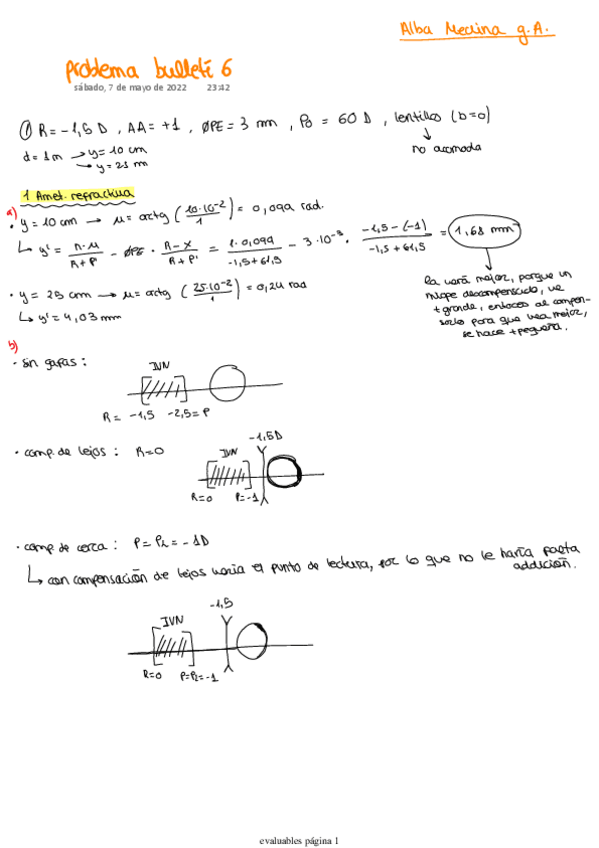 Alba Medina g.A.
Problema bulletí 6
sábado, 7 de mayo de 2022 23:42
① R = -1,5 D , AA = +1 , ØPE = 3 mm , P0 = 60 D , lentillas (b=0)
d = 1m → y = 10 cm
→ y = 25 cm
↓
no acomoda
1 Amet. refractiva
a)
· y = 10 cm → μ = arctg (10·10⁻²/1) = 0,099 rad.
↳ y' = n·μ/R+P - ØPE · R-X/R+P' = 1·0,099/-1,5+61,5 - 3·10⁻³ · -1,5-(-1)/-1,5+61,5 = 1,68 mm
↓
la verá mejor, porque un
miope descompensado, ve
+ grande, entonces al compen-
sarlo para que vea mejor,
se hace + pequeña.
· y = 25 cm → μ = arctg (25·10⁻²/1) = 0,24 rad
↳ y' = 4,03 mm
b)
· sin gafas :
IVN
R = -1,5 -2,5 = P
· comp. de lejos : R=0
-1,5D
IVN
R=0 P=-1
· comp. de cerca : P = PL = -1D
↳ con compensación de lejos varía el punto de lectura, por lo que no le haría falta
addición.
-1,5
IVN
R=0 P=PL=-1
evaluables página 1